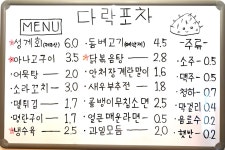 다락포차
MENU
*성게회(제주산) 6.0
*아나고구이 3.5
·어묵탕 — 2.0
·소라꼬치 — 3.0
·명란구이 — 1.7
*냉수육 — 2.5
·등뼈고기 4.5
*닭볶음탕 — 2.8
·안처장계란말이 1.6
·새우부추전 — 1.8
·골뱅이무침소면 2.5
·얼큰매운라면 — 0.5
·과일모듬 — 2.0
-주류-
·소주 — 0.5
·맥주 — 0.5
·청하 — 0.7
·막걸리 0.4
·음료수 0.2
·햇반 — 0.2